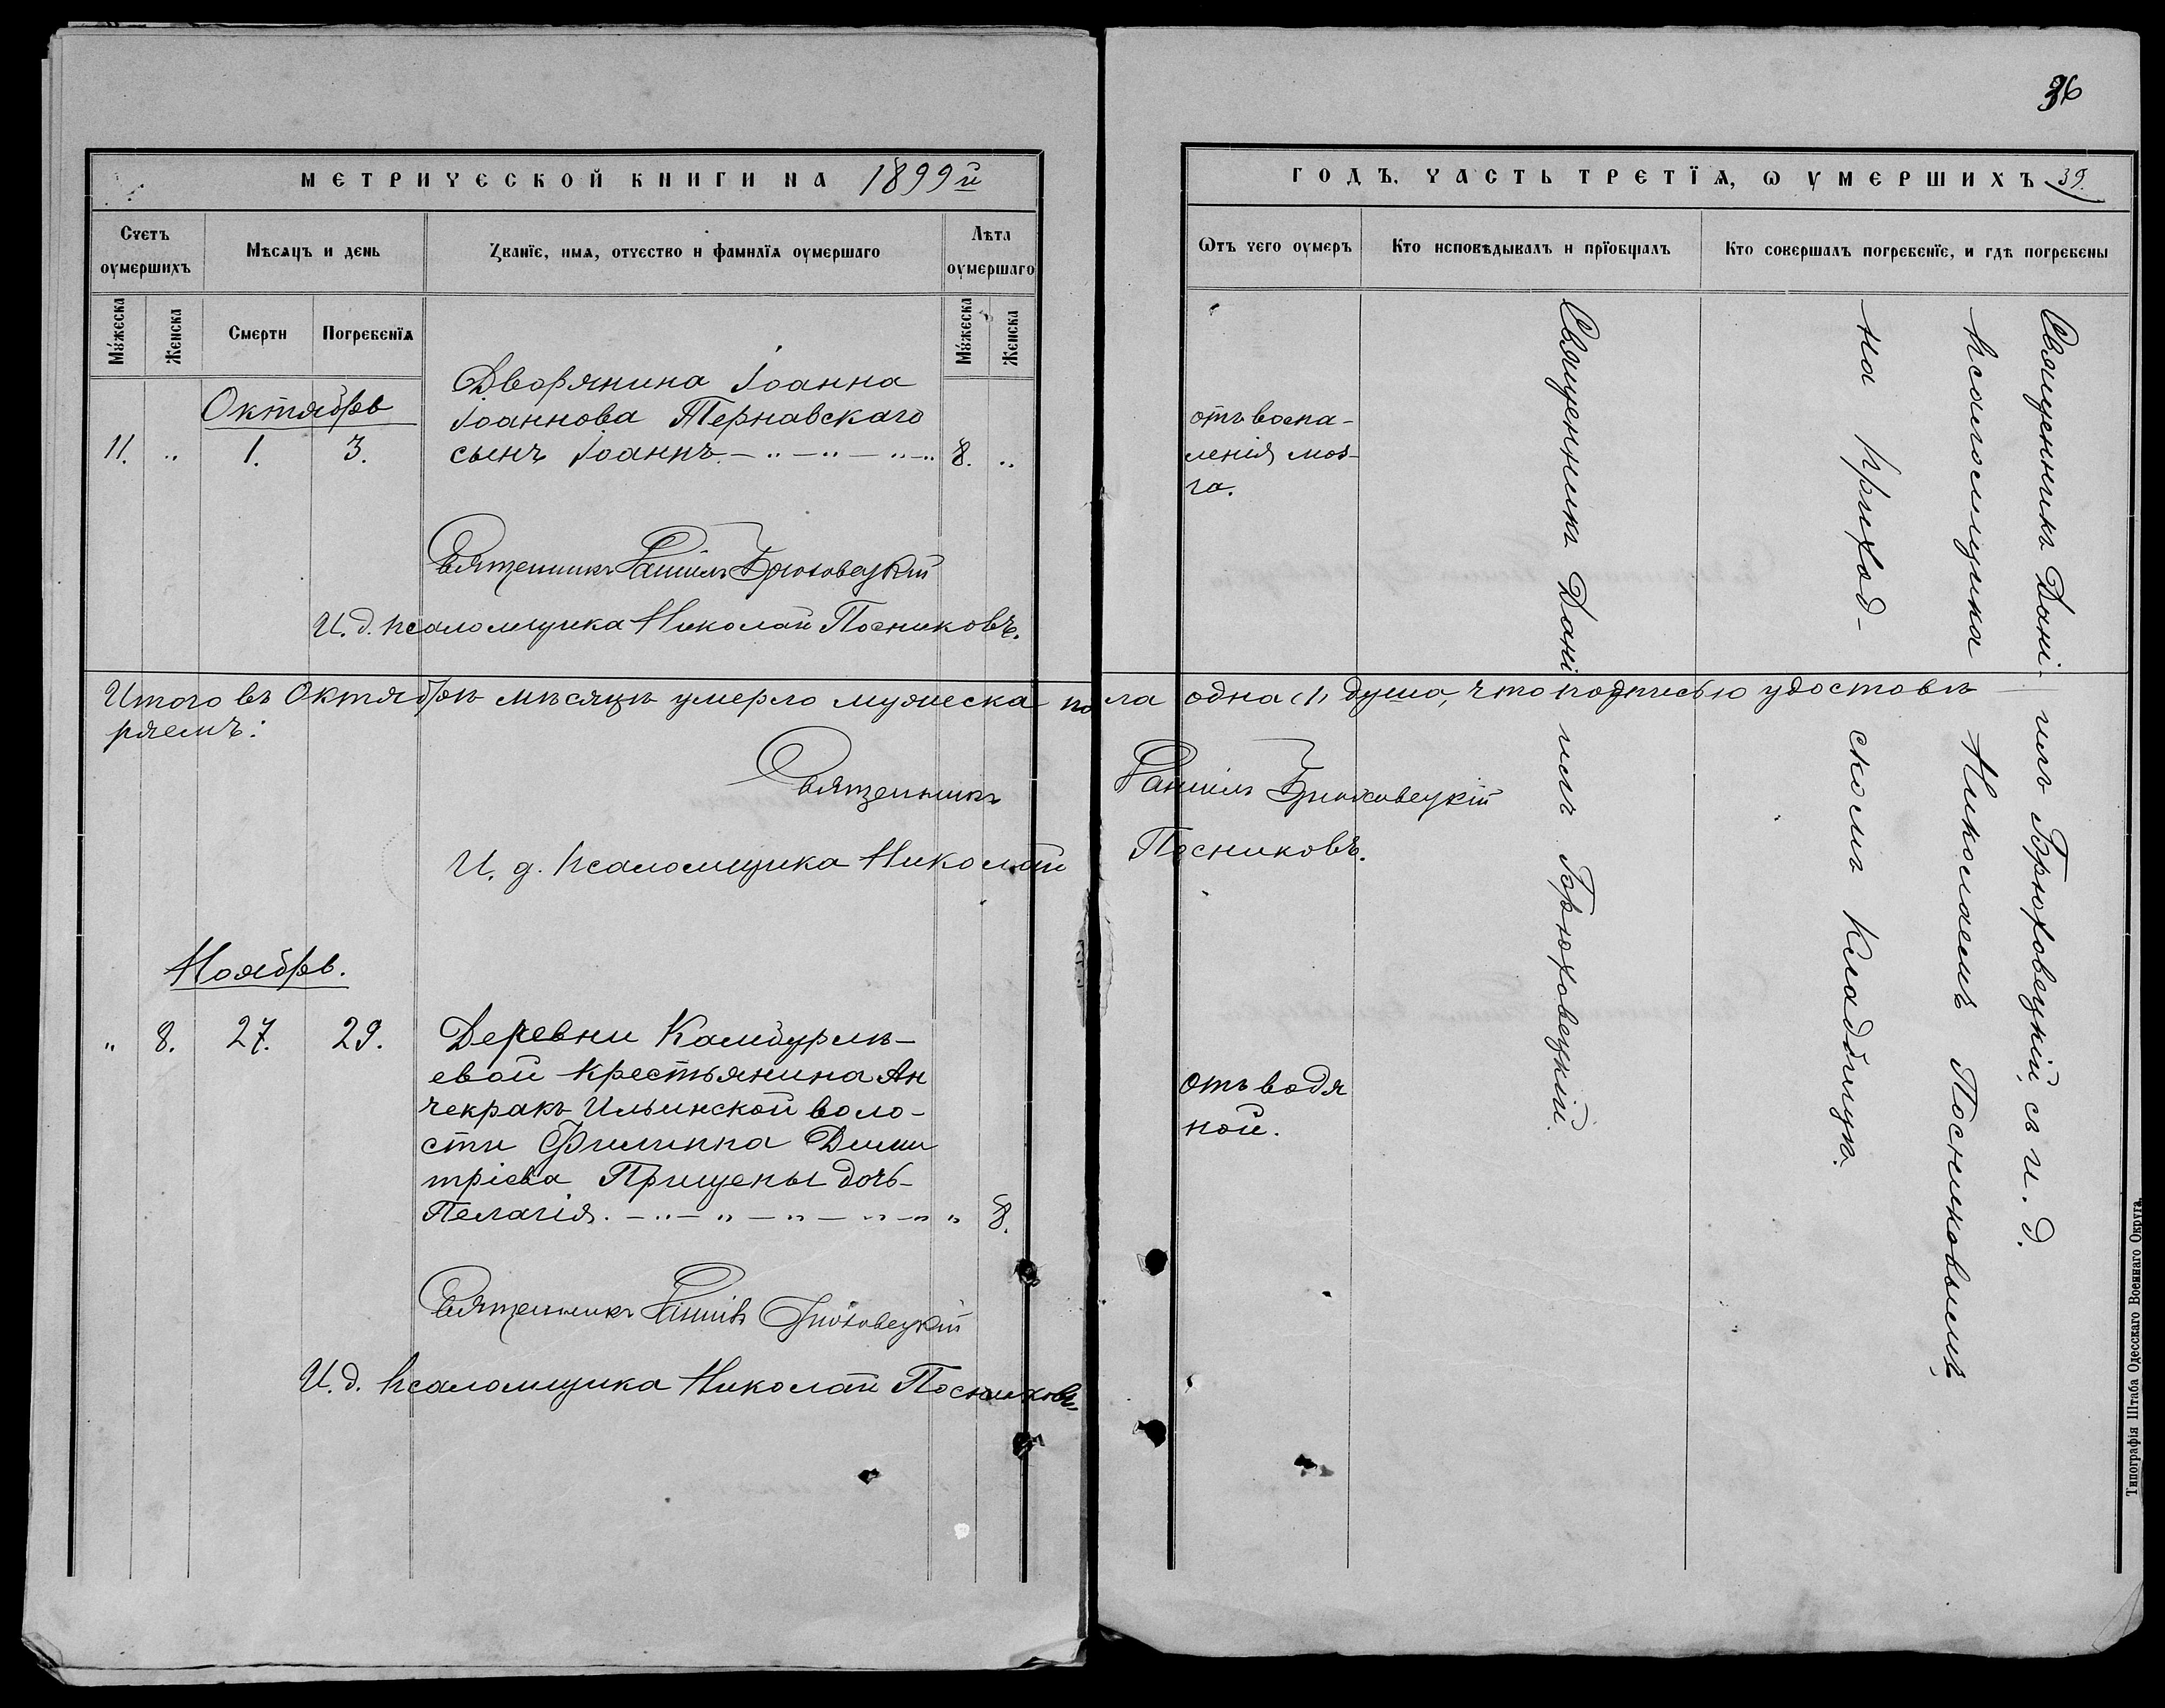 МЕТРИЧЕСКОЙ КНИГИ НА 1899й
Счетъ оумершихъ
Мѣсяцъ и день
Званїе, имѧ, отчество и фамилїѧ оумершаго
Лѣта оумершаго
Мꙋжеска
Женска
Смерти
Погребенїѧ
Мꙋжеска
Женска
Октябрь
11. " 1. 3.
Дворянина Іоанна
Іоаннова Тернавскаго
сынъ Іоаннъ. 8. "
Священникъ Даніилъ Брюховецкій
И. д. псаломщика Николай Посниковъ.
Итого въ Октябрѣ мѣсяцѣ умерло мужеска пола одна (1) душа, что подписью удостовѣ
ряемъ:
Священникъ Даніилъ Брюховецкій
И. д. псаломщика Николай Посниковъ.
Ноябрь.
" 8. 27. 29.
Деревни Камбурлѣ-
евой крестьянина Ан
чекракъ Ильинской воло-
сти Филиппа Дими
тріева Прищепы дочь
Пелагія. " 8.
Священникъ Даніилъ Брюховецкій
И. д. псаломщика Николай Посниковъ.
36
ГОДЪ, ЧАСТЬ ТРЕТЇѦ, Ѡ ОУМЕРШИХЪ 39.
Ѡтъ чего оумеръ
Кто исповѣдывалъ и прїобщалъ
Кто совершалъ погребенїе, и гдѣ погребены
отъ воспа-
ленія моз-
га.
отъ водя
ной.
Священникъ Даніилъ Брюховецкій.
Священникъ Даніилъ Брюховецкій съ и. д.
псаломщика Николаемъ Посниковымъ
на приходскомъ кладбищѣ.
Типографія Штаба Одесскаго Военнаго Округа.